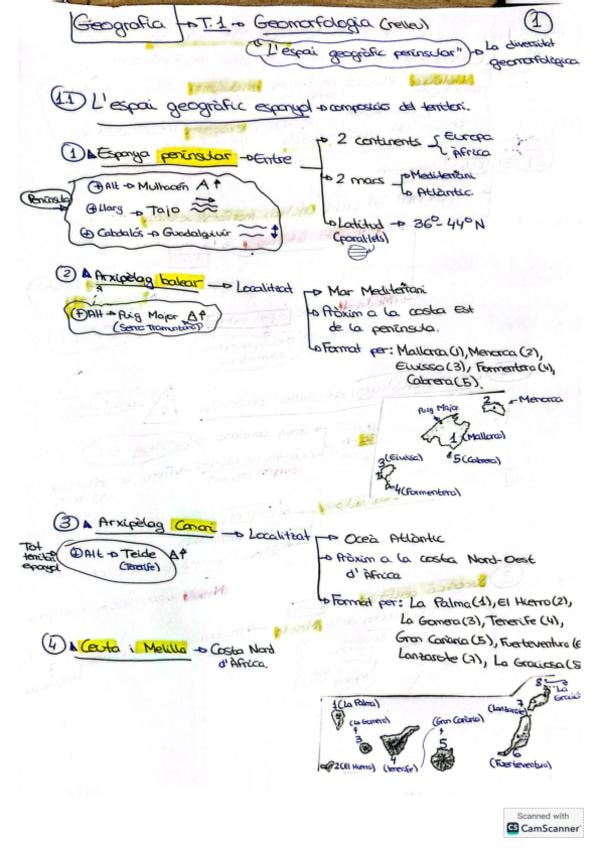 Geografia → T.1 → Geomorfologia (relleu) 1
"L'espai geogràfic peninsular" → La diversitat geomorfològica
1.1 L'espai geogràfic espanyol → composició del territori.
1 Espanya peninsular → Entre
2 continents Europa Àfrica
2 mars Mediterrani Atlàntic.
Latitud → 36º-44º N
(paral·lels)
Península
+ Alt → Mulhacén
+ Llarg → Tajo
+ Cabdalós → Guadalquivir
2 Arxipèlag balear → Localitzat
Mar Mediterrani
Pròxim a la costa Est
de la península.
Format per: Mallorca (1), Menorca (2),
Eivissa (3), Formentera (4),
Cabrera (5).
+ Alt → Puig Major
(Serra Tramuntana)
Puig Major
2 ← Menorca
1 (Mallorca)
3 (Eivissa)
5 (Cabrera)
4 (Formentera)
3 Arxipèlag Canari → Localitzat
Oceà Atlàntic
Pròxim a la costa Nord-Oest
d'Àfrica
Format per: La Palma (1), El Hierro (2),
La Gomera (3), Tenerife (4),
Gran Canària (5), Fuerteventura (6
Lanzarote (7), La Graciosa (8
Tot territori espanyol
+ Alt → Teide
(Tenerife)
4 Ceuta i Melilla → Costa Nord
d'Àfrica.
1 (La Palma)
(La Gomera)
3
2 (El Hierro)
4 (Tenerife)
(Gran Canària)
5
(Lanzarote) 7
8 La Gracio
6
(Fuerteventura)
Scanned with
CS CamScanner